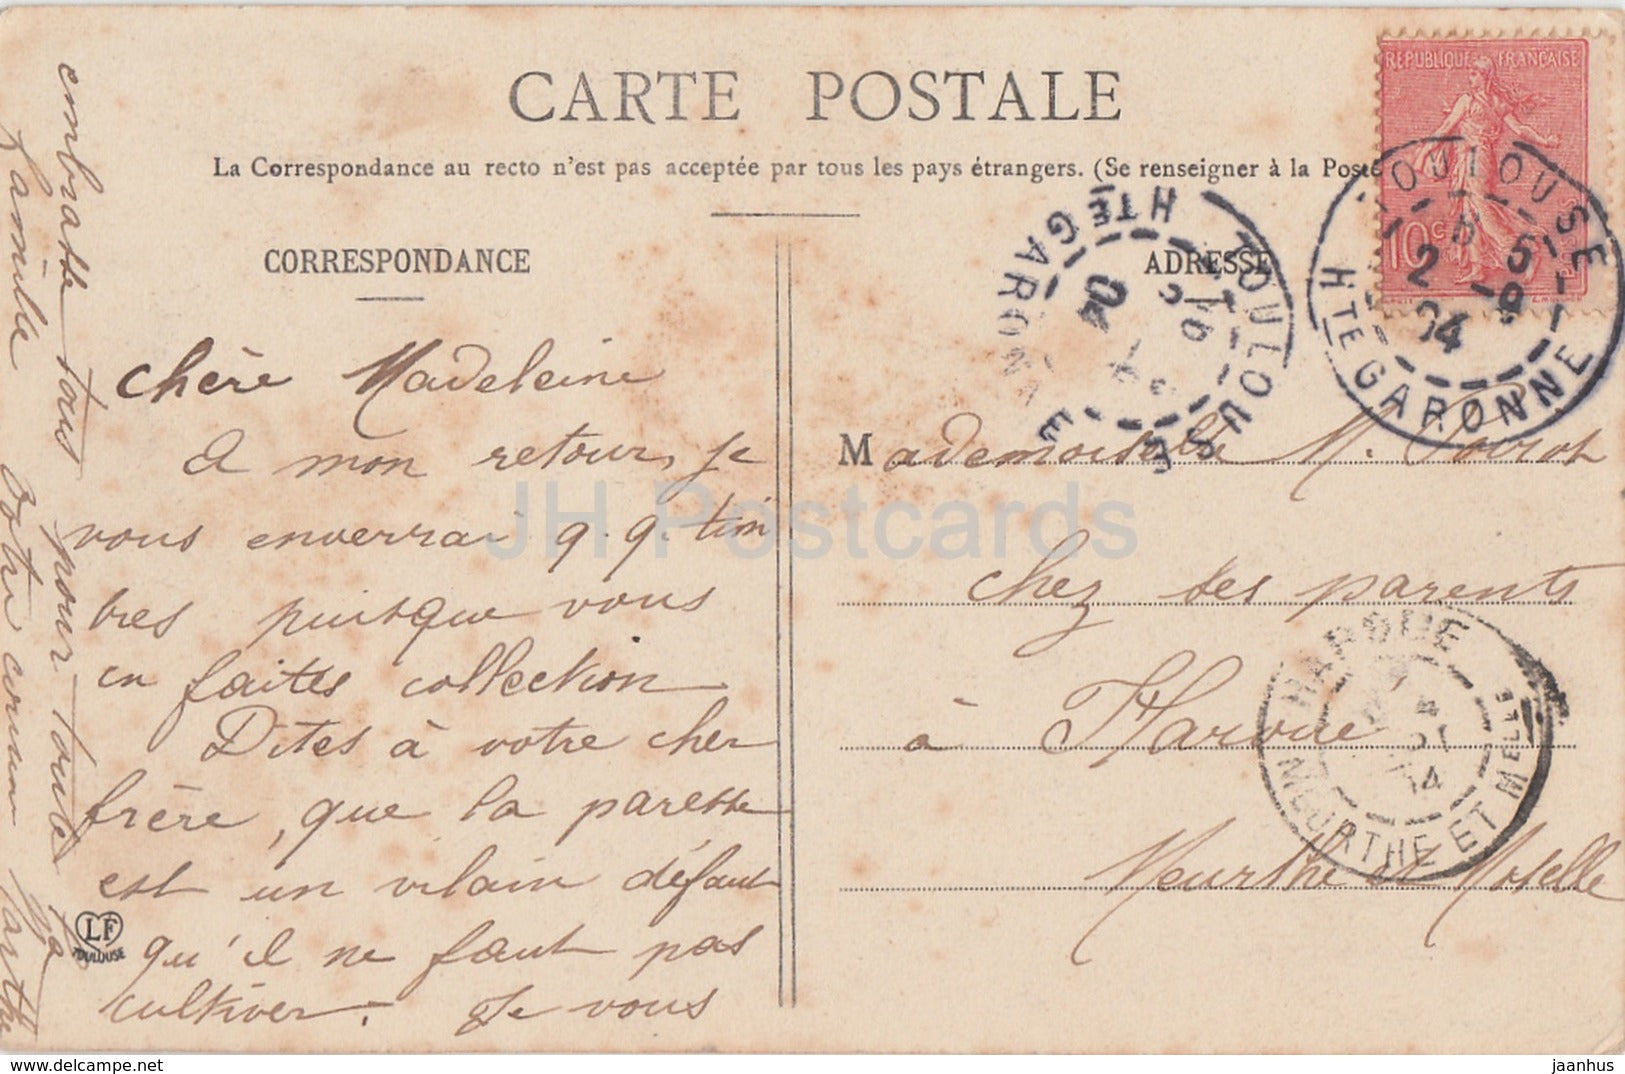 CARTE POSTALE
La Correspondance au recto n'est pas acceptée par tous les pays étrangers. (Se renseigner à la Poste
CORRESPONDANCE
ADRESSE
RÉPUBLIQUE FRANÇAISE
10c
TOULOUSE
2 5
9
04
HTE GARONNE
TOULOUSE
HTE GARONNE
chère Madeleine
A mon retour, je
vous enverrai q. q. tim
bres puisque vous
en faites collection
Dites à votre cher
frère, que la paresse
est un vilain défaut
qu'il ne faut pas
cultiver. Je vous
embrasse tous pour toute
la famille Votre cousin
Mademoiselle M. Poirot
chez ses parents
à Haroué
Meurthe et Moselle
HAROUÉ
04
MEURTHE ET MELLE
LF
TOULOUSE
JH Postcards
www.delcampe.net
jaanhus